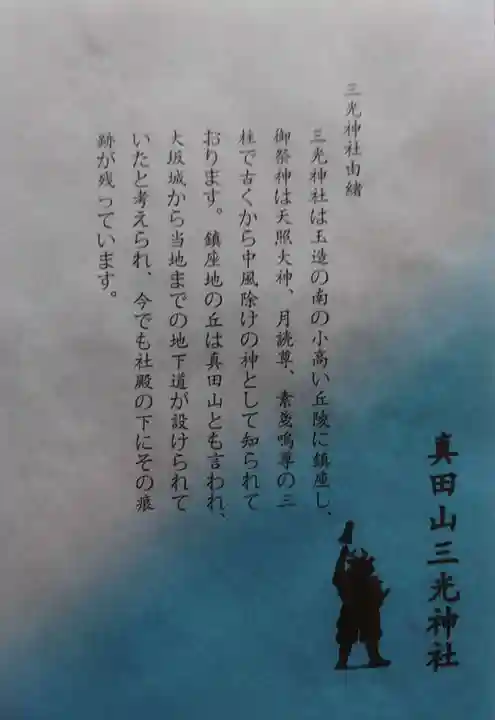 真田山三光神社
三光神社由緒
三光神社は玉造の南の小高い丘陵に鎮座し、
御祭神は天照大神、月読尊、素盞嗚尊の三
柱で古くから中風除けの神として知られて
おります。鎮座地の丘は真田山とも言われ、
大坂城から当地までの地下道が設けられて
いたと考えられ、今でも社殿の下にその痕
跡が残っています。